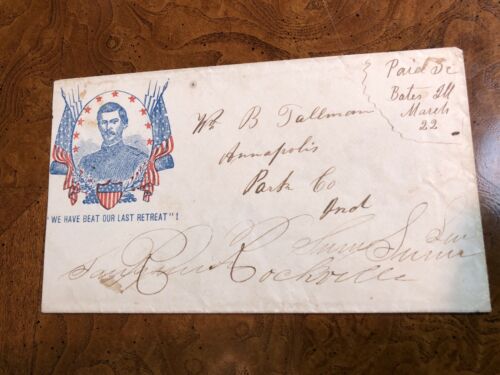 Paid 3c
Bates Ill
March
22
Wm B Tallman
Annapolis
Park Co
Ind
"WE HAVE BEAT OUR LAST RETREAT"!
Rockville